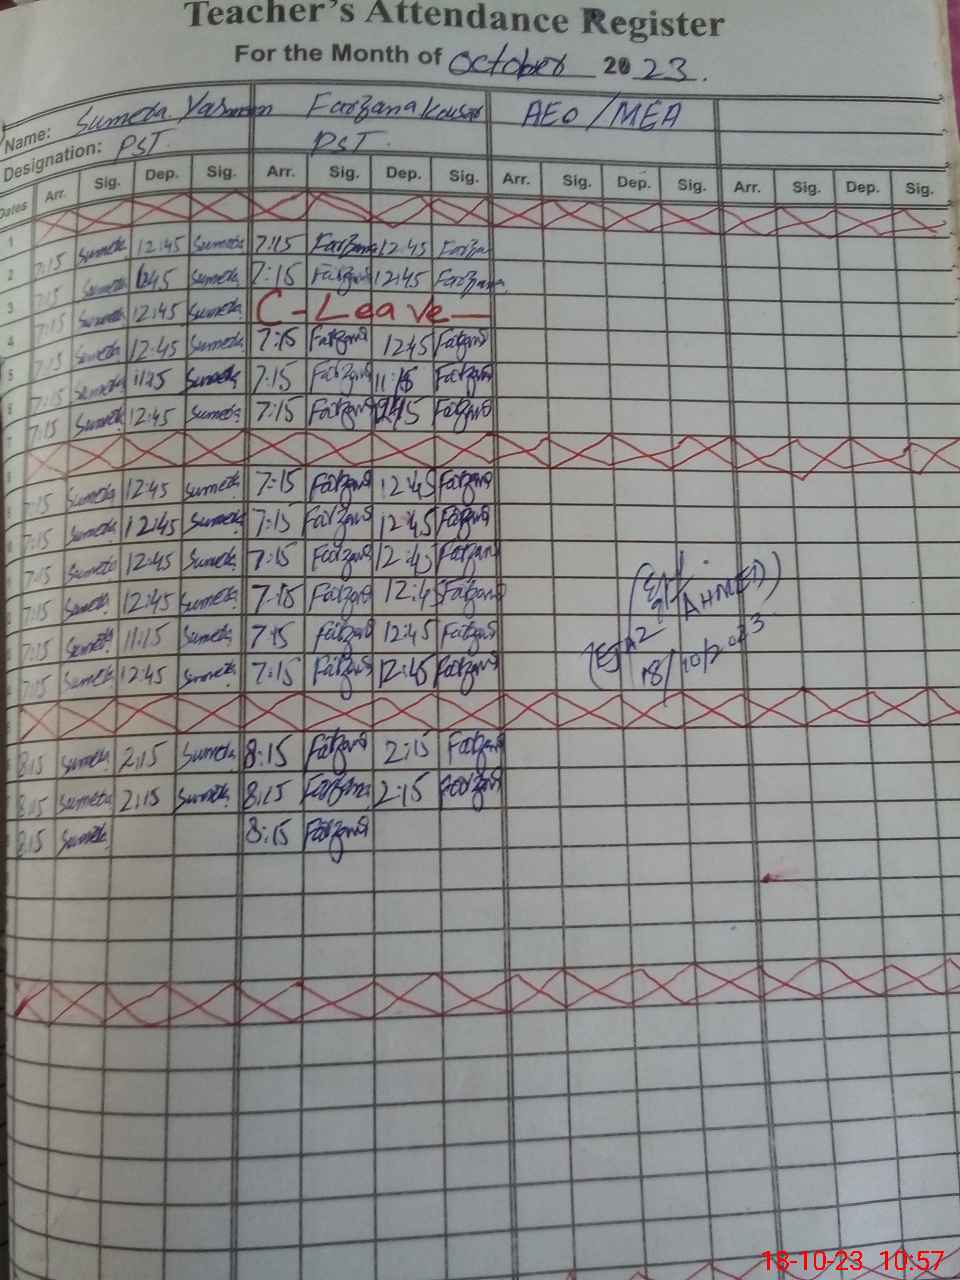 Teacher's Attendance Register
For the Month of October 2023.
Name: Sumeda Yasmeen Farzana Kousar AEO/MEA
Designation: PST. PST.
Dates Arr. Sig. Dep. Sig. Arr. Sig. Dep. Sig. Arr. Sig. Dep. Sig. Arr. Sig. Dep. Sig.
1
2 7:15 Sumeda 12:45 Sumeda 7:15 Farzana 12:45 Farzana
3 7:15 Sumeda Sumeda 7:15 Farzana 12:45 Farzana
4 7:15 Sumeda 12:45 Sumeda C-Leave
5 7:15 Sumeda 12:45 Sumeda 7:15 Farzana 12:45 Farzana
6 7:15 Sumeda 11:15 Sumeda 7:15 Farzana 11:15 Farzana
7 7:15 Sumeda 12:45 Sumeda 7:15 Farzana 12:45 Farzana
7:15 Sumeda 12:45 Sumeda 7:15 Farzana 12:45 Farzana
7:15 Sumeda 12:45 Sumeda 7:15 Farzana 12:45 Farzana
7:15 Sumeda 12:45 Sumeda 7:15 Farzana 12:45 Farzana
7:15 Sumeda 12:45 Sumeda 7:15 Farzana 12:45 Farzana
7:15 Sumeda 11:15 Sumeda 7:15 Farzana 12:45 Farzana
7:15 Sumeda 12:45 Sumeda 7:15 Farzana 12:45 Farzana
(EJAZ AHMED)
18/10/2023
8:15 Sumeda 2:15 Sumeda 8:15 Farzana 2:15 Farzana
8:15 Sumeda 2:15 Sumeda 8:15 Farzana 2:15 Farzana
8:15 Sumeda 8:15 Farzana
18-10-23 10:57